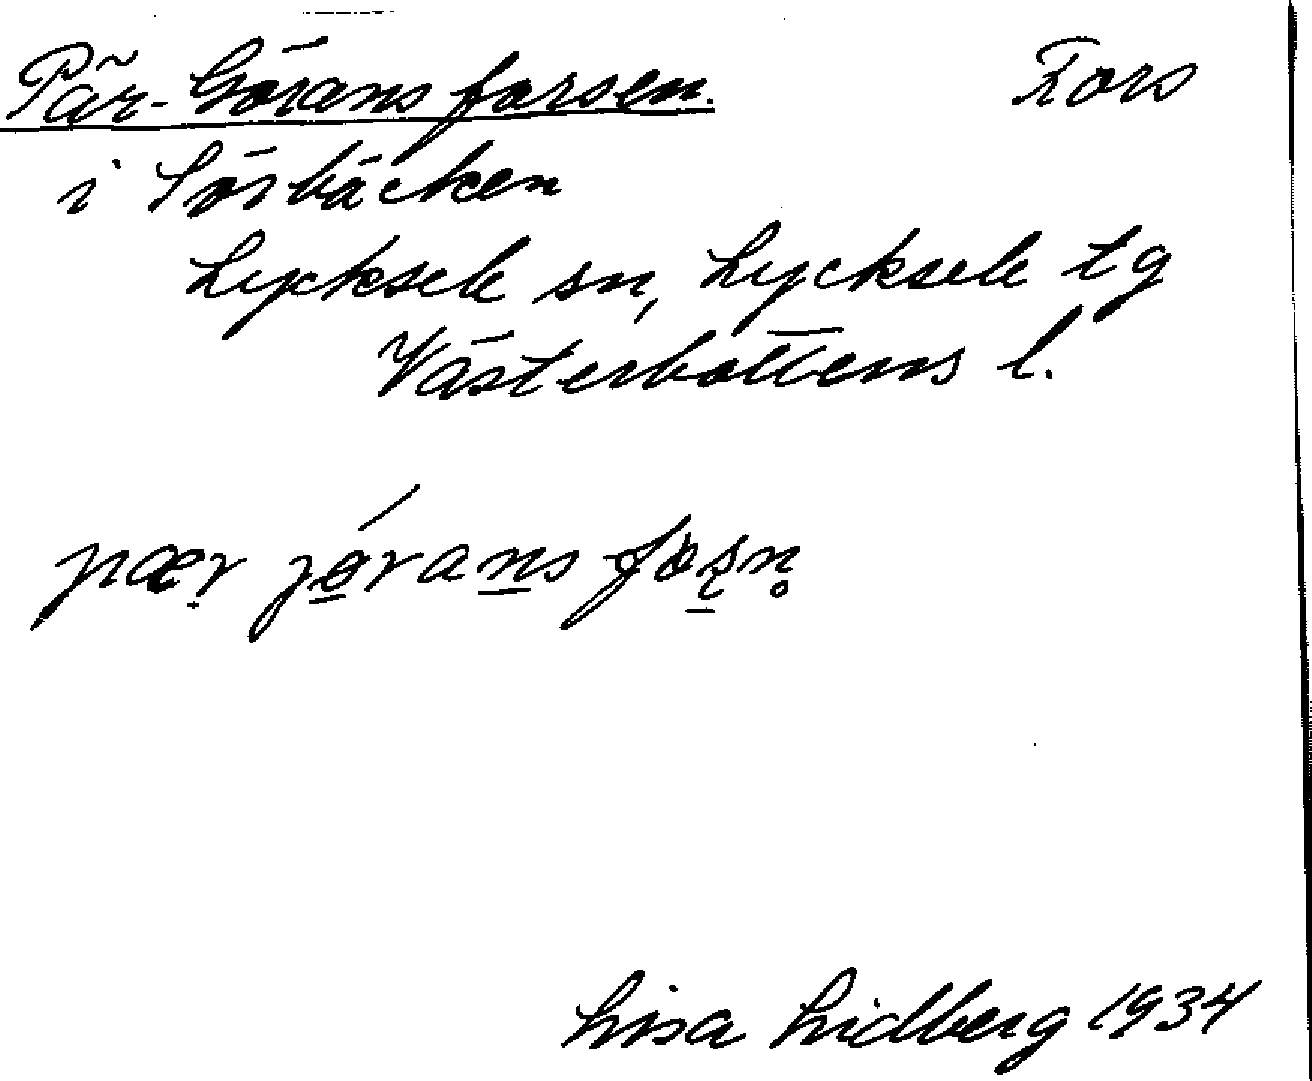 Pär-Görans forsen. Fors
i Sörbäcken
Lycksele sn, Lycksele tg
Västerbottens l.
pær jörans fosn
Lisa Lidberg 1934